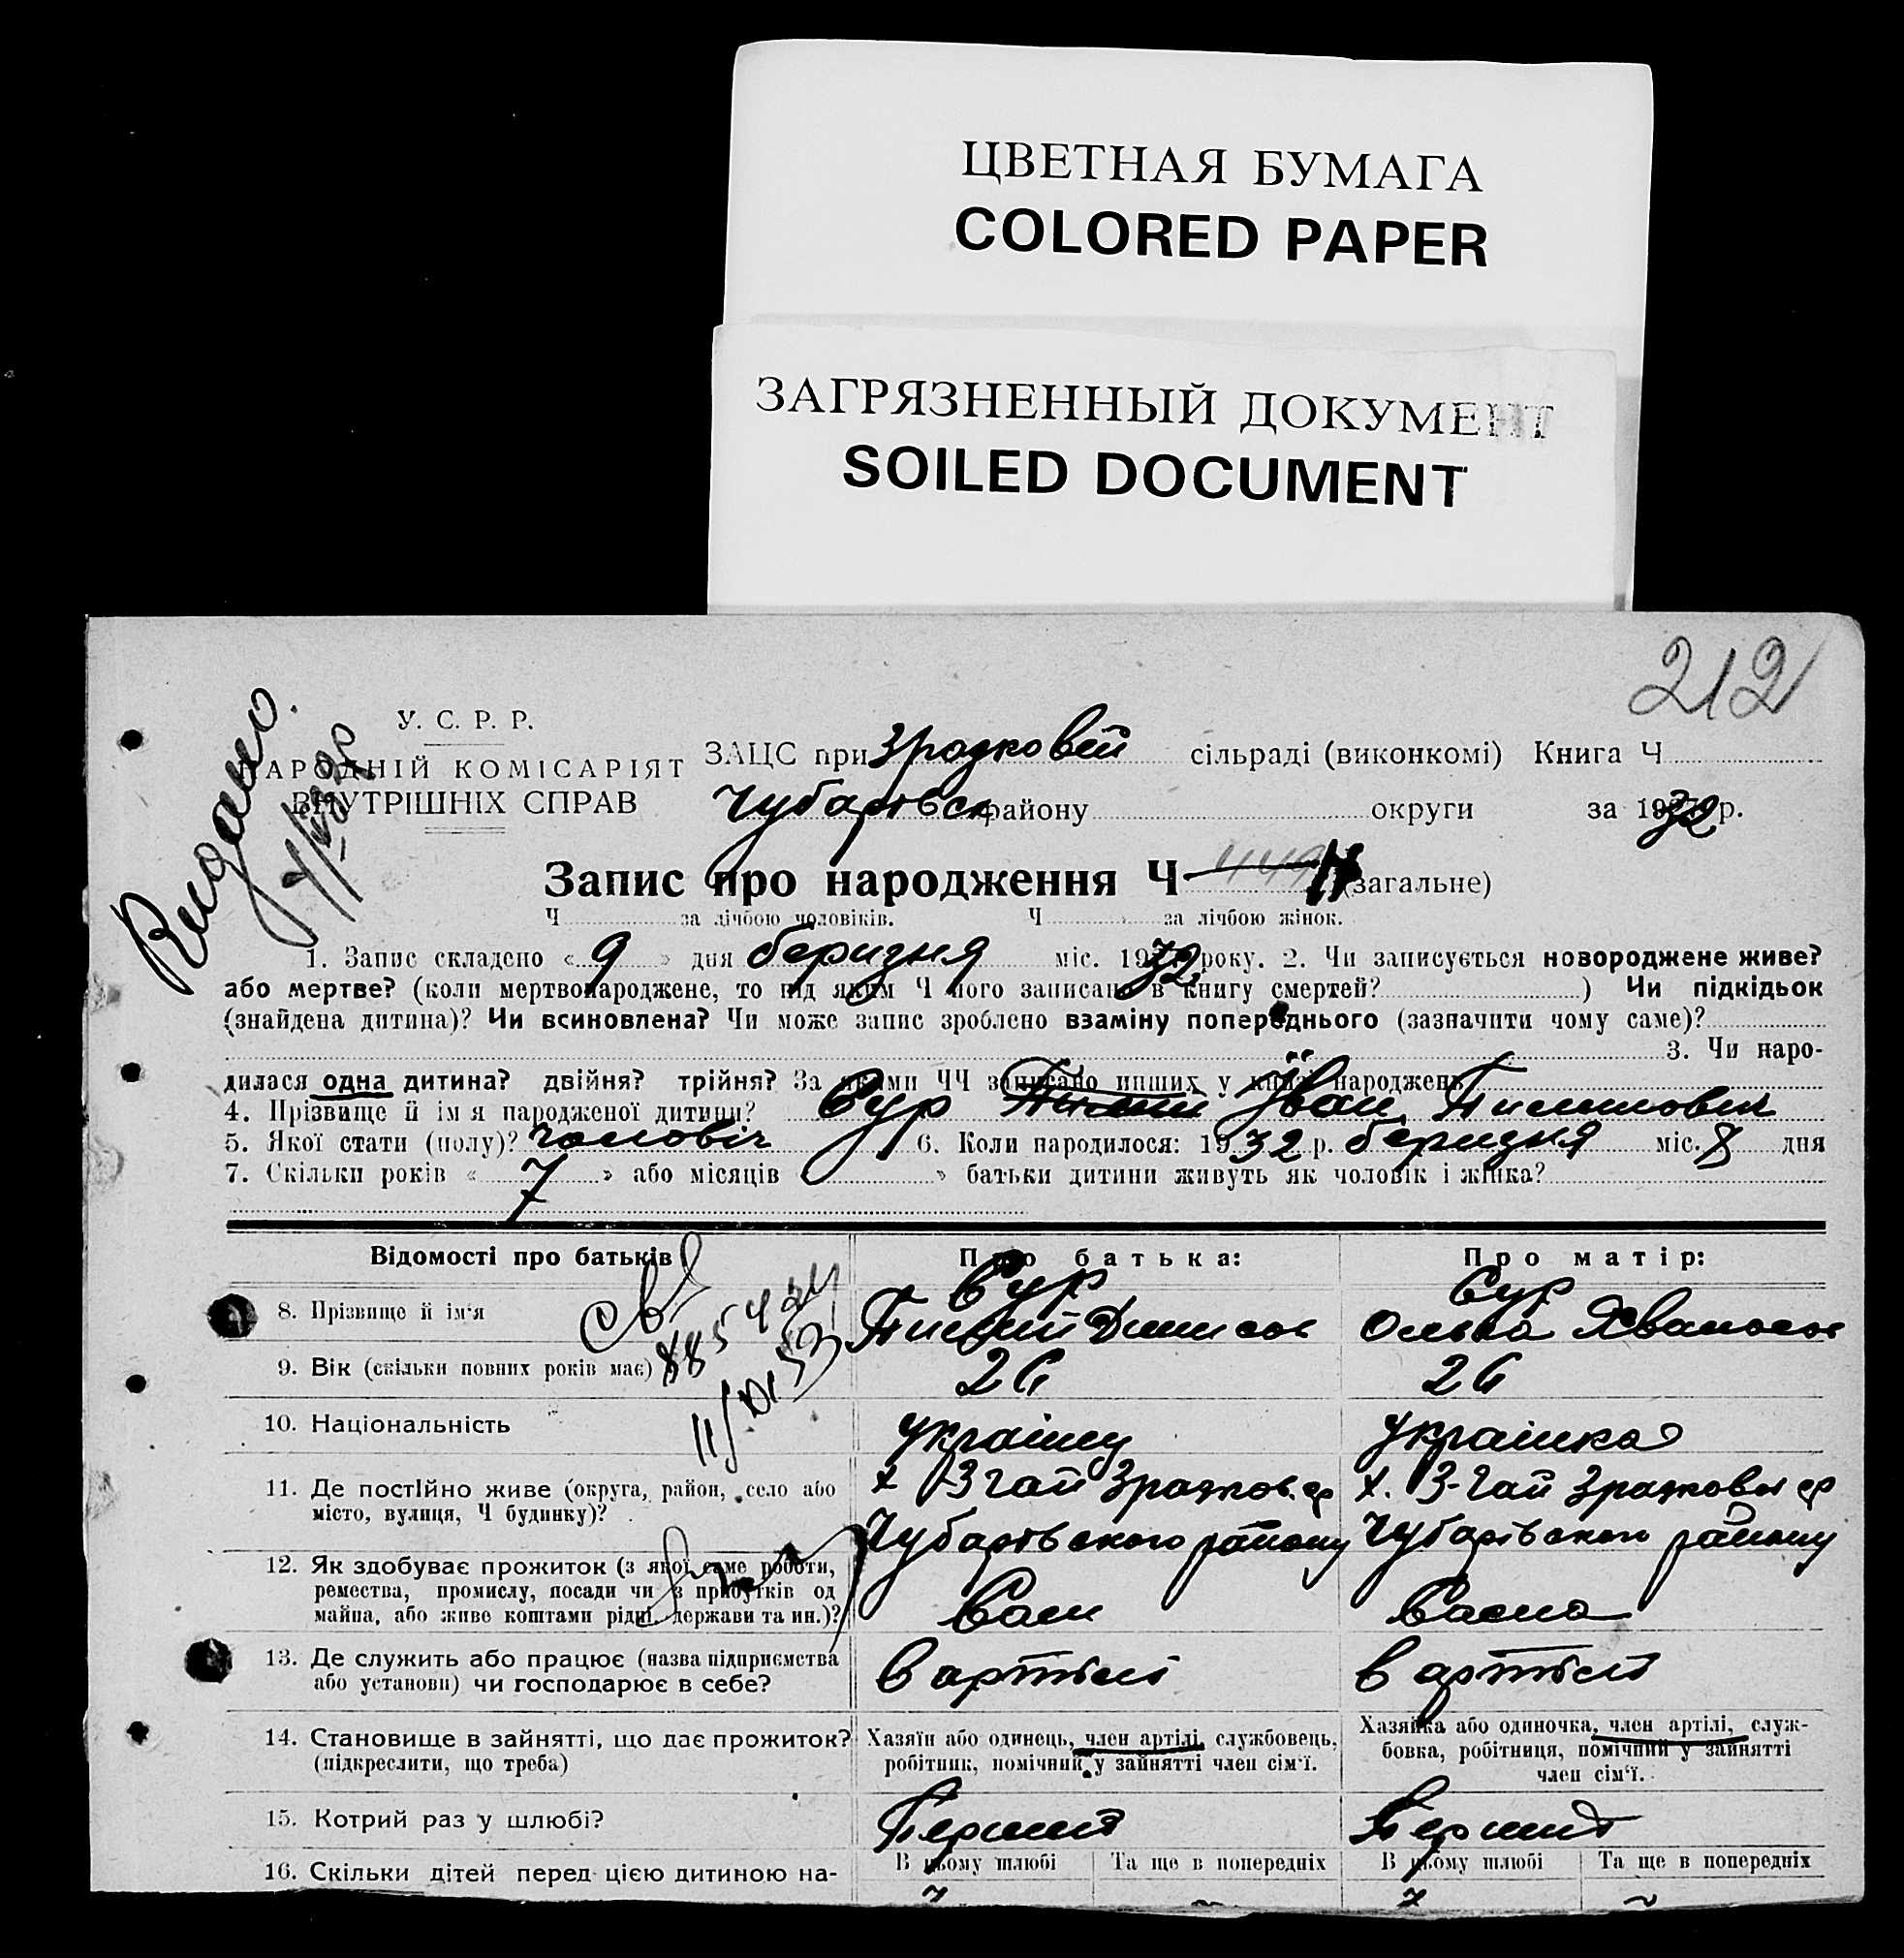 ЦВЕТНАЯ БУМАГА
COLORED PAPER
ЗАГРЯЗНЕННЫЙ ДОКУМЕНТ
SOILED DOCUMENT
212
Видано.
У. С. Р. Р.
НАРОДНІЙ КОМІСАРІЯТ
ВНУТРІШНІХ СПРАВ
ЗАЦС при Зразковей сільраді (виконкомі) Книга Ч
Чубарівськ району округи за 1932 р.
Запис про народження Ч (загальне)
Ч за лічбою чоловіків. Ч за лічбою жінок.
1. Запис складено « 9 » дня березня міс. 1932 року. 2. Чи записується новороджене живе?
або мертве? (коли мертвонароджене, то під яким Ч його записано в книгу смертей? ) Чи підкідьок
(знайдена дитина)? Чи всиновлена? Чи може запис зроблено взаміну попереднього (зазначити чому саме)?
3. Чи наро-
дилася одна дитина? двійня? трійня? За якими ЧЧ записано инших у книзі народжень
4. Прізвище й ім'я народженої дитини? Сур Іван
5. Якої стати (полу)? чоловіч 6. Коли народилося: 1932 р. березня міс. 8 дня
7. Скільки років « 7 » або місяців » батьки дитини живуть як чоловік і жінка?
Відомості про батьків
Про батька:
Про матір:
8. Прізвище й ім'я
Сур
Сур
9. Вік (скільки повних років має)
26
26
10. Національність
українец
українка
11. Де постійно живе (округа, район, село або
місто, вулиця, Ч будинку)?
х. Гай Зразков.
Чубарівського району
х. Гай Зразков
Чубарівського району
12. Як здобуває прожиток (з якої саме роботи,
ремества, промислу, посади чи з прибутків од
майна, або живе коштами рідні, держави та ин.)?
13. Де служить або працює (назва підприємства
або установи) чи господарює в себе?
в артілі
в артілі
14. Становище в зайнятті, що дає прожиток?
(підкреслити, що треба)
Хазяїн або одинець, член артілі, службовець,
робітник, помічник у зайнятті член сім'ї.
Хазяйка або одиночка, член артілі, служ-
бовка, робітниця, помічний у зайнятті
член сім'ї.
15. Котрий раз у шлюбі?
Перший
Перший
16. Скільки дітей перед цією дитиною на-
В цьому шлюбі
Та ще в попередніх
В цьому шлюбі
Та ще в попередніх